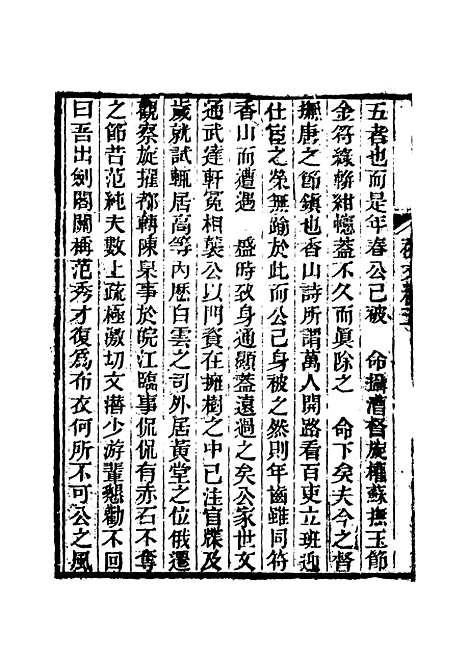 五者也而是年春公已被　命攝漕督旋權蘇撫玉節
金符綠軿紺幰蓋不久而眞除之　命下矣夫今之督
撫唐之節鎮也香山詩所謂萬人開路看百吏立班迎
仕宦之榮無踰於此而公已身被之然則年齒雖同符
香山而遭遇　盛時致身通顯蓋遠過之矣公家世文
通武達軒冕相襲公以門資在擁樹之中已注官牒及
歲就試輒居高等內歷白雲之司外居黃堂之位俄遷
觀察旋擢都轉陳臬事於皖江臨事侃侃有赤石不奪
之節昔范純夫數上疏極激切文潛少游輩懇勸不回
曰吾出劍閣關稱范秀才復爲布衣何所不可公之風